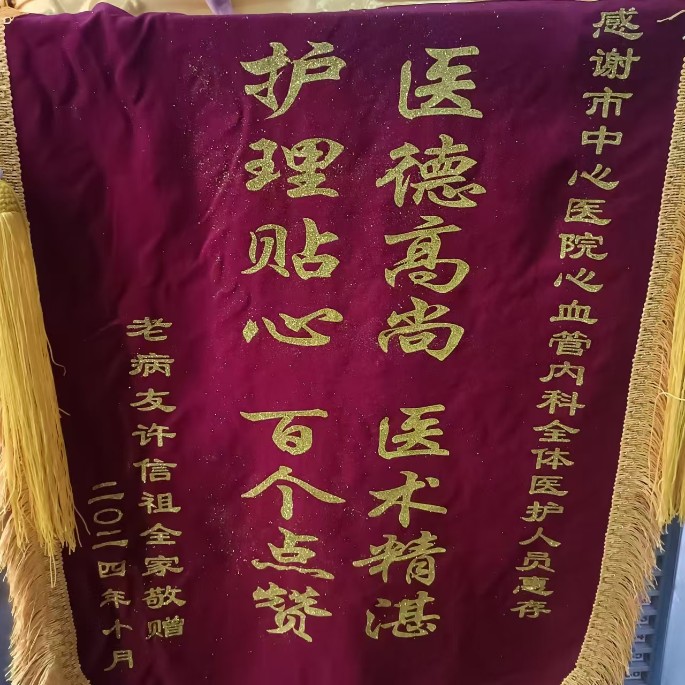 感谢市中心医院心血管内科全体医护人员惠存
医德高尚 医术精湛
护理贴心 百个点赞
老病友许信祖全家敬赠
二〇二四年十月